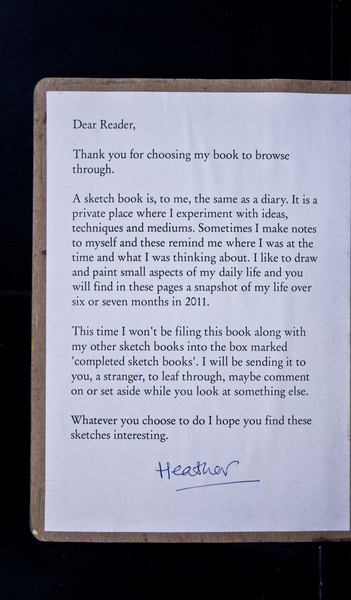 Dear Reader,
Thank you for choosing my book to browse
through.
A sketch book is, to me, the same as a diary. It is a
private place where I experiment with ideas,
techniques and mediums. Sometimes I make notes
to myself and these remind me where I was at the
time and what I was thinking about. I like to draw
and paint small aspects of my daily life and you
will find in these pages a snapshot of my life over
six or seven months in 2011.
This time I won't be filing this book along with
my other sketch books into the box marked
'completed sketch books'. I will be sending it to
you, a stranger, to leaf through, maybe comment
on or set aside while you look at something else.
Whatever you choose to do I hope you find these
sketches interesting.
Heather